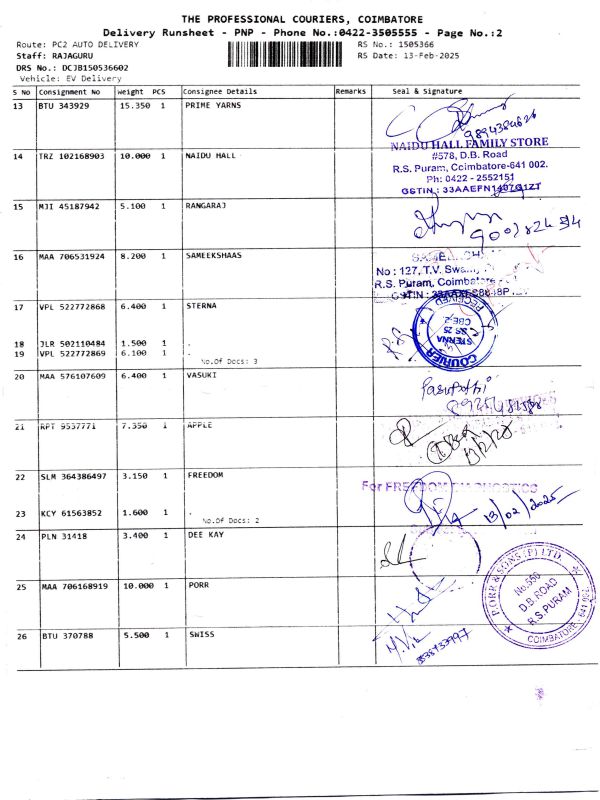 THE PROFESSIONAL COURIERS, COIMBATORE
Delivery Runsheet - PNP - Phone No.:0422-3505555 - Page No.:2
Route: PC2 AUTO DELIVERY
RS No.: 1505366
Staff: RAJAGURU
RS Date: 13-Feb-2025
DRS No.: DCJB150536602
Vehicle: EV Delivery
S No Consignment No Weight PCS Consignee Details Remarks Seal & Signature
13 BTU 343929 15.350 1 PRIME YARNS
9894384626
NAIDU HALL FAMILY STORE
14 TRZ 102168903 10.000 1 NAIDU HALL
#578, D.B. Road
R.S. Puram, Coimbatore-641 002.
Ph: 0422 - 2552151
GSTIN : 33AAEFN1407G1ZT
15 MJI 45187942 5.100 1 RANGARAJ
16 MAA 706531924 8.200 1 SAMEEKSHAAS
No : 127, T.V. Swamy
R.S. Puram, Coimbatore
17 VPL 522772868 6.400 1 STERNA
RECEIVED
CBE-2
RS 25
STERNA
COURIER
18 JLR 502110484 1.500 1 .
19 VPL 522772869 6.100 1 .
No.Of Docs: 3
20 MAA 576107609 6.400 1 VASUKI
21 RPT 9537771 7.350 1 APPLE
22 SLM 364386497 3.150 1 FREEDOM
For FREEDOM
13/02/2025
23 KCY 61563852 1.600 1 .
No.Of Docs: 2
24 PLN 31418 3.400 1 DEE KAY
25 MAA 706168919 10.000 1 PORR
PORR & SONS (P) LTD.
No.560
D.B. ROAD
R.S. PURAM
COIMBATORE - 641 002.
26 BTU 370788 5.500 1 SWISS